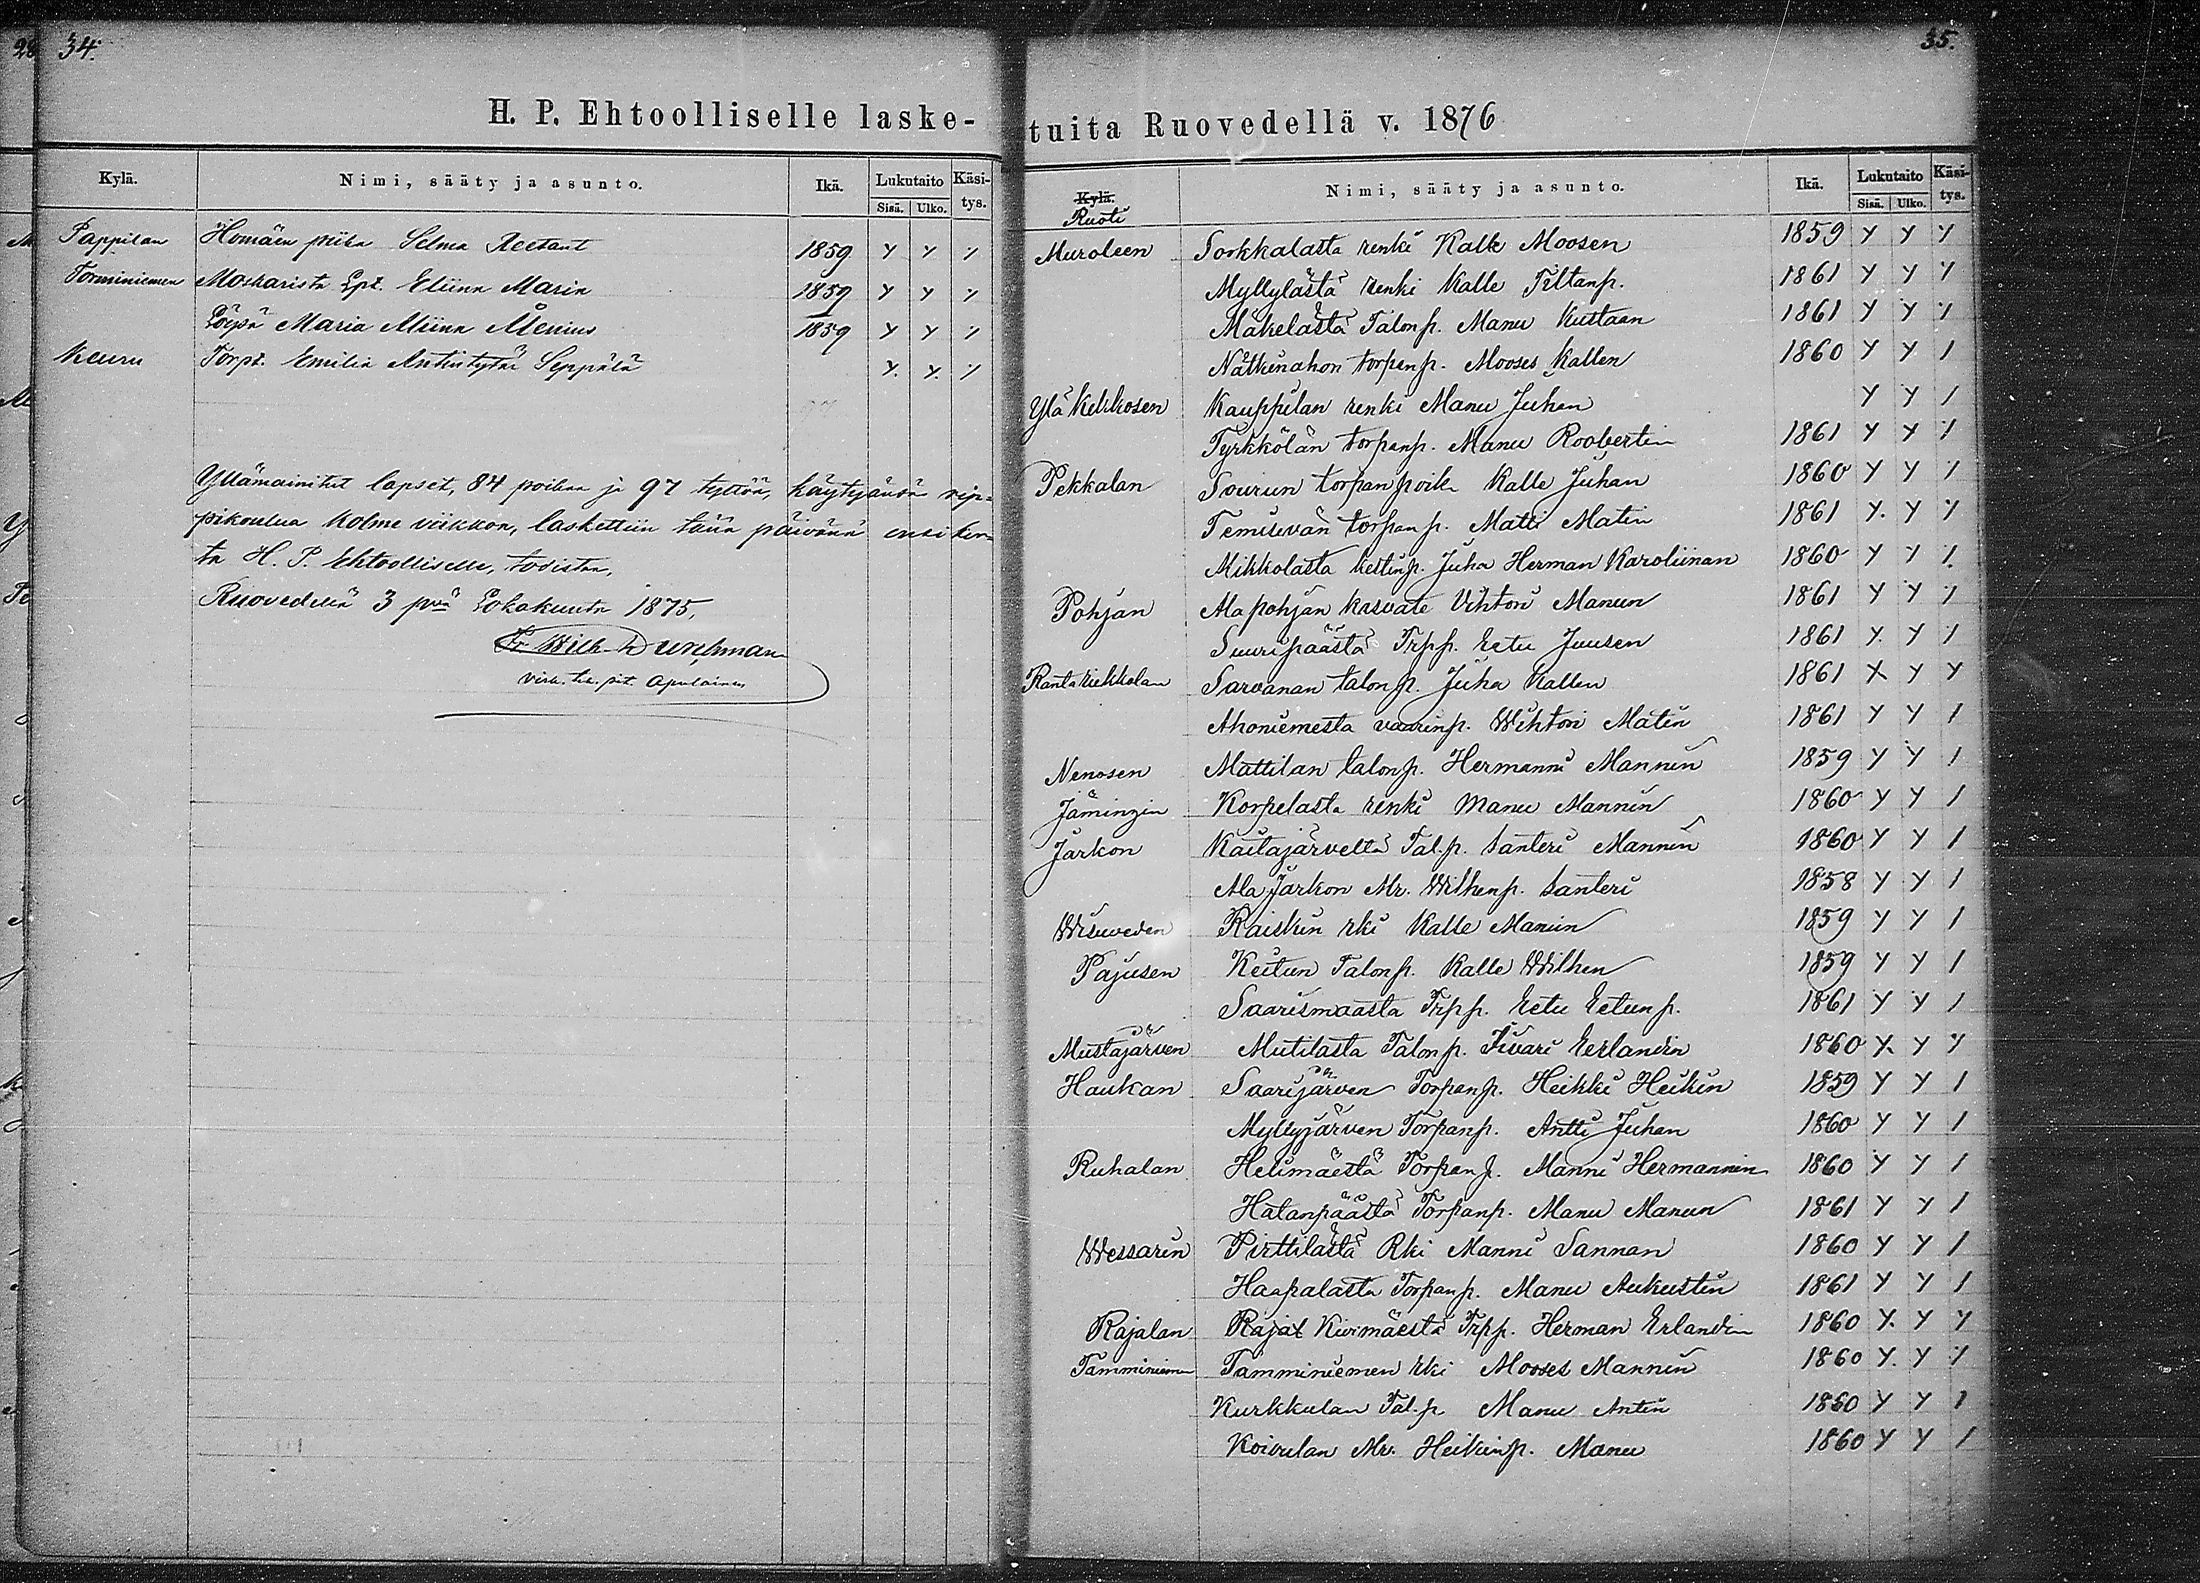 28 34.
H. P. Ehtoolliselle laske-
Kylä. Nimi, sääty ja asunto. Ikä. Lukutaito Käsi-
Sisä. Ulko. tys.
Pappilan Homäen piika Selma 1859 y y /
Torminiemen Lpt. Eliina Maria 1859 y y /
Maria Miina Menius 1859 y y /
Keuru Torpt. Emilia Antintytär Seppälä y. y. /
Yllämainitut lapset, 84 poikaa ja 97 tyttöä, käytyänsä rip-
pikoulua kolme viikkoa, laskettiin tänä päivänä ensi ker-
ta H. P. Ehtoolliselle, todistaa,
Ruovedellä 3 pnä Lokakuuta 1875,
Fr. Wilh. Durchman
virk. tek. pit. apulainen
35.
tuita Ruovedellä v. 1876
Kylä. Nimi, sääty ja asunto. Ikä. Lukutaito Käsi-
Ruoti Sisä. Ulko. tys.
Muroleen Sorkkalasta renki Kalle Moosen 1859 y y y
Myllylästä renki Kalle Tiltanp. 1861 y y y
Mäkelästä Talonp. Manu Kustaan 1861 y y y
Nätkinahon torpanp. Mooses Kallen 1860 y y /
Ylä Kekkosen Kauppilan renki Manu Juhan y y /
Tyrkkölän torpanp. Manu Roobertin 1861 y y y
Pekkalan Sourun torpanpoik. Kalle Juhan 1860 y y /
Temisevän torpanp. Matti Matin 1861 y. y y
Mikkolasta kestinp. Juha Herman Karoliinan 1860 y y /.
Pohjan Alapohjan kasvate Vihtori Manun 1861 y y /
Suuripäästä Trpp. Eetu Juusen 1861 y. y /
Ranta Kekkolan Sarvanan talonp. Juha Kallen 1861 X y y
Ahoniemestä vaarinp. Wihtori Matin 1861 y y /
Nenosen Mattilan talonp. Hermanni Mannin 1859 y y /
Jämingin Korpelasta renki Manu Mannin 1860 y y /
Jarkon Kaitajärveltä Tal.p. Santeri Mannin 1860 y y /
Ala Jarkon Mr. Wilhenp. Santeri 1858 y y /
Wisuveden Raiskin rki Kalle Manun 1859 y y /
Pajusen Keitun Talonp. Kalle Wilhen 1859 y y /
Saarismaasta Trpp. Eetu Eetunp. 1861 y y /
Mustajärven Mutilasta Talonp. Iivari Eerlandin 1860 y. y y
Haukan Saarijärven Torpanp. Heikki Heikin 1859 y y /
Myllyjärven Torpanp. Antti Juhan 1860 y y /
Ruhalan Helimäestä Torpanp. Manni Hermannin 1860 y y /
Hatanpäästä Torpanp. Manu Manun 1861 y y /
Wessarin Pirttilästä Rki Manni Sannan 1860 y y /
Haapalasta Torpanp. Manu Aukustin 1861 y y /
Rajalan Rajal Kivimäestä Trpp. Herman Erlandin 1860 y. y y
Tamminiemen Tamminiemen rki Mooses Mannin 1860 y. y y
Kurkkulan Tal.p Manu Antin 1860 y y /
Koivulan Mr. Heikinp. Manu 1860 y y /